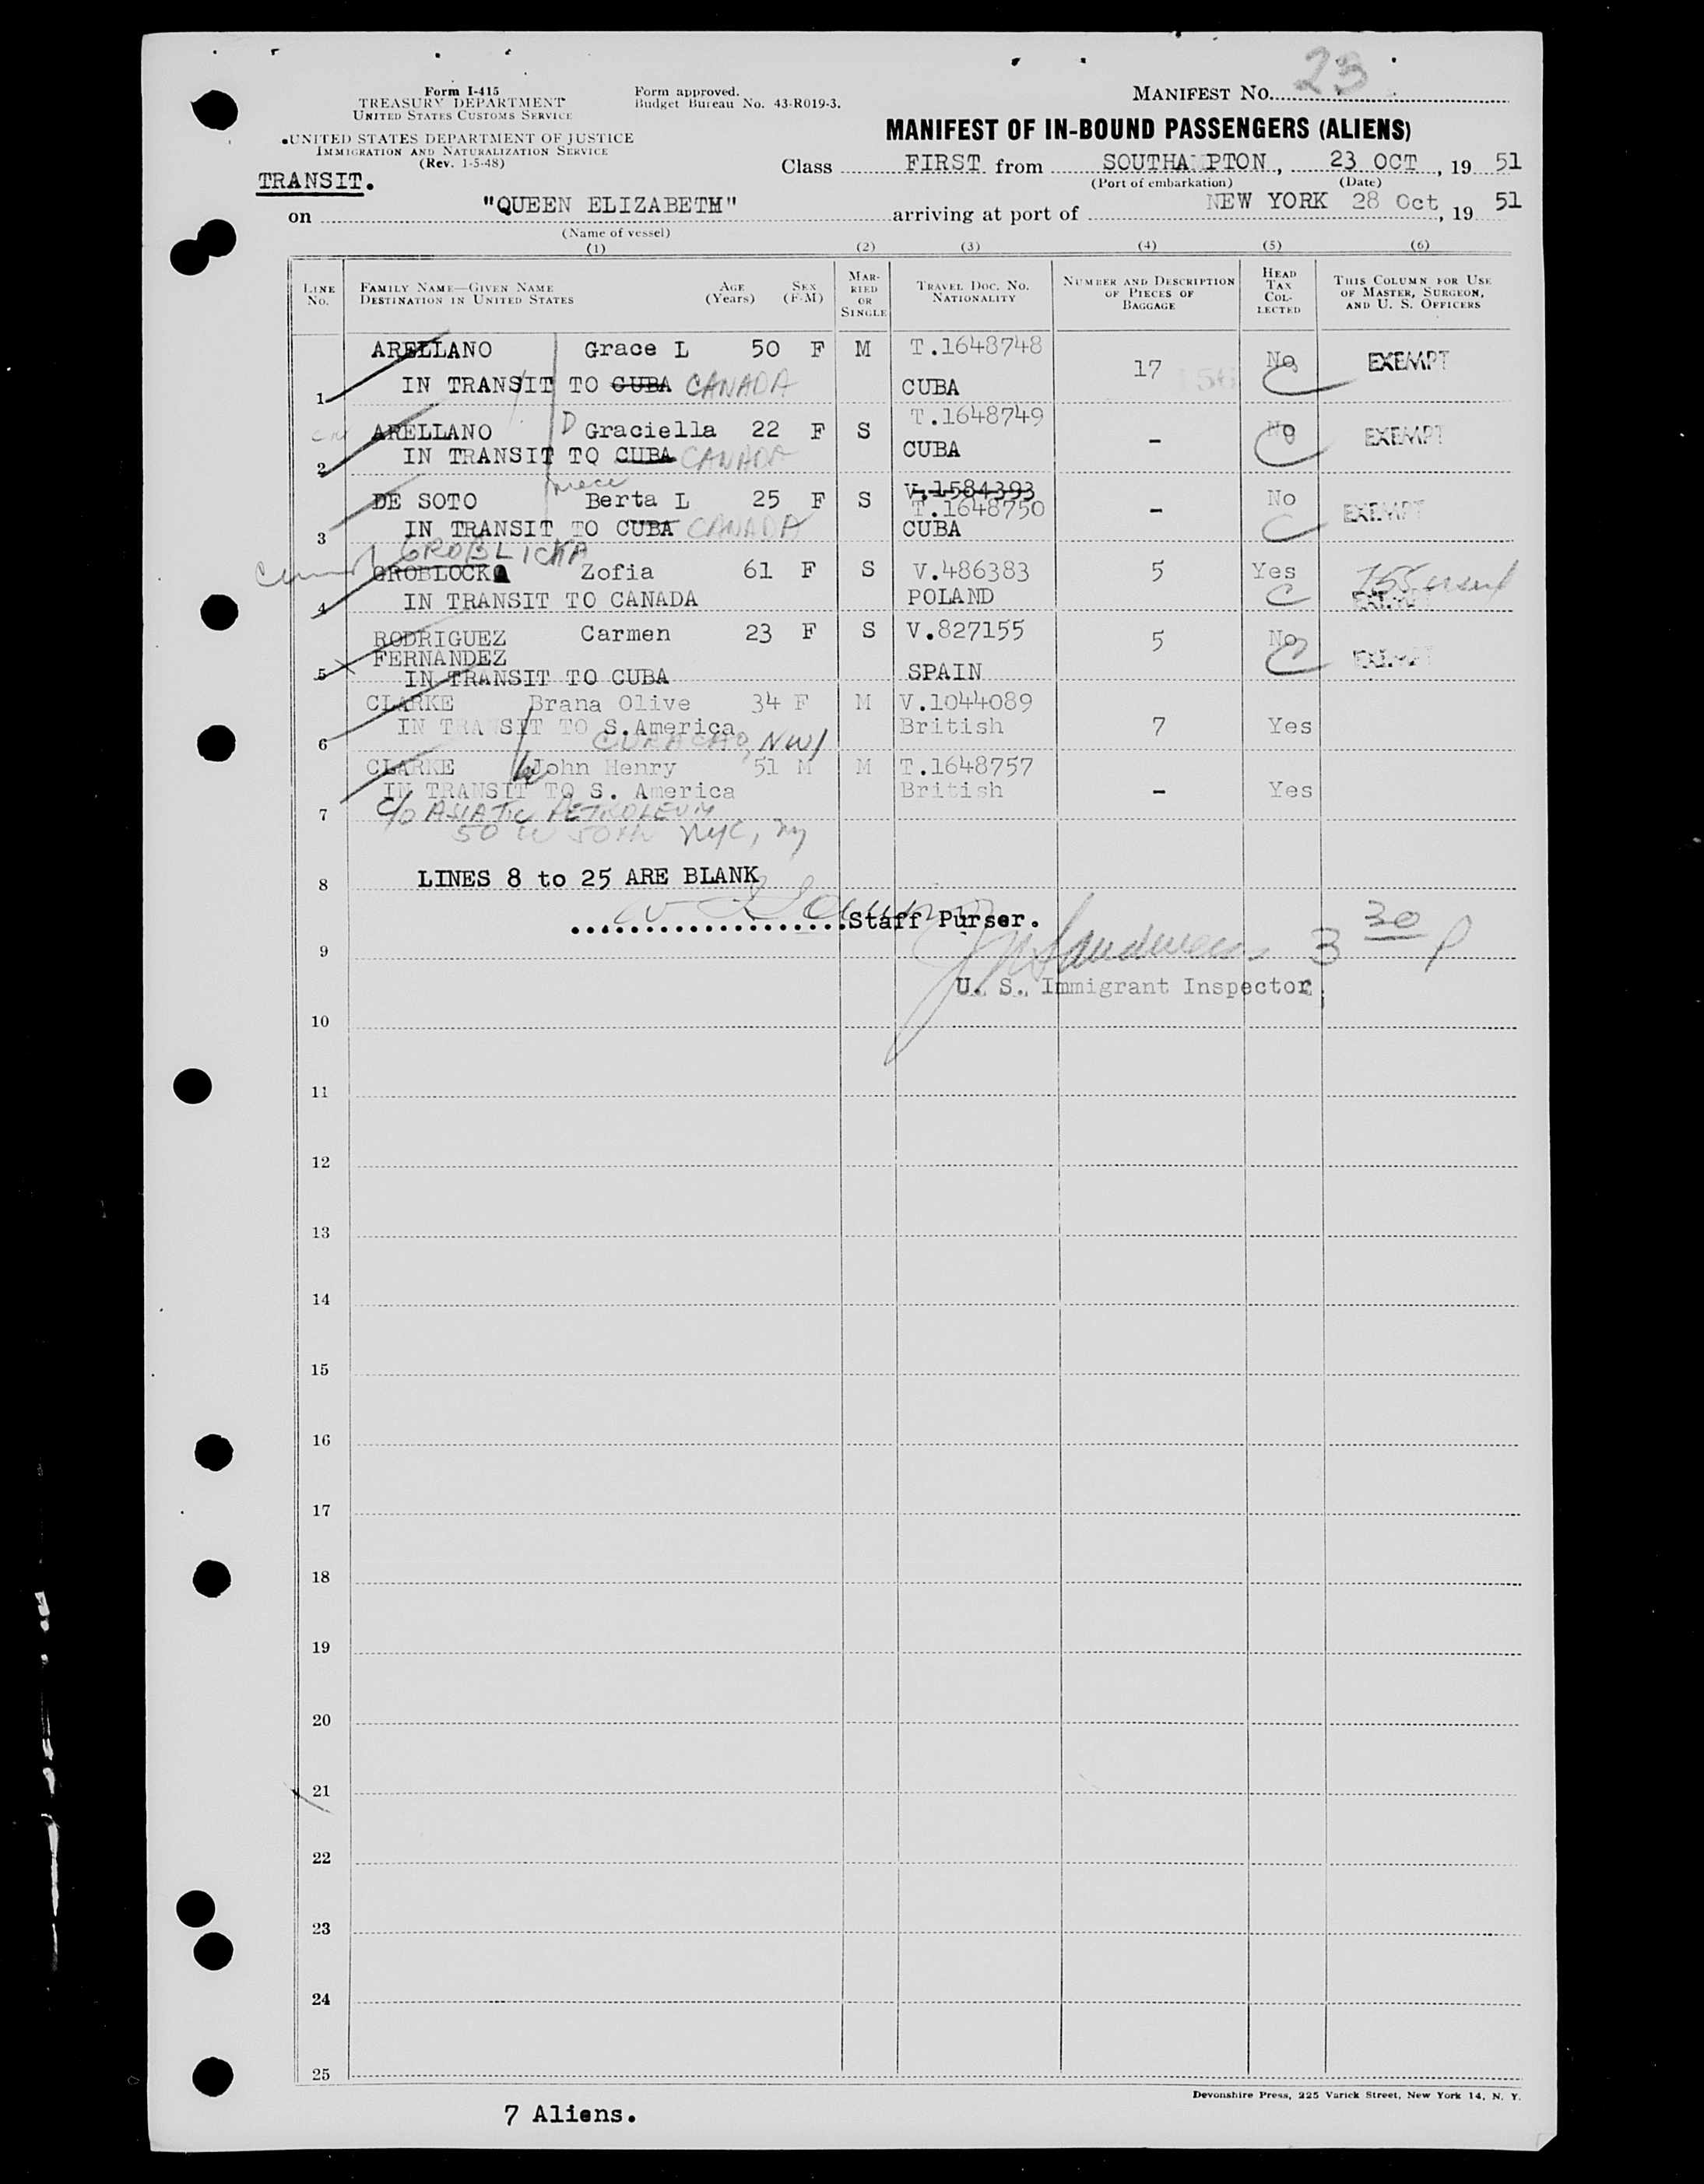 23
Form I-415
TREASURY DEPARTMENT
UNITED STATES CUSTOMS SERVICE
Form approved.
Budget Bureau No. 43-R019-3.
MANIFEST NO.
UNITED STATES DEPARTMENT OF JUSTICE
IMMIGRATION AND NATURALIZATION SERVICE
(Rev. 1-5-48)
MANIFEST OF IN-BOUND PASSENGERS (ALIENS)
Class FIRST from SOUTHA PTON, 23 OCT, 19 51
(Port of embarkation) (Date)
TRANSIT.
on "QUEEN ELIZABETH" arriving at port of NEW YORK 28 Oct, 19 51
(Name of vessel)
(1) (2) (3) (4) (5) (6)
LINE NO. FAMILY NAME—GIVEN NAME DESTINATION IN UNITED STATES AGE (Years) SEX (F-M) MARRIED OR SINGLE TRAVEL DOC. NO. NATIONALITY NUMBER AND DESCRIPTION OF PIECES OF BAGGAGE HEAD TAX COLLECTED THIS COLUMN FOR USE OF MASTER, SURGEON, AND U. S. OFFICERS
ARELLANO Grace L 50 F M T.1648748 17 No EXEMPT
1 IN TRANSIT TO CUBA CANADA CUBA
ARELLANO D Graciella 22 F S T.1648749 - No EXEMPT
2 IN TRANSIT TO CUBA CANADA CUBA
niece
DE SOTO Berta L 25 F S V.1584393 T.1648750 - No EXEMPT
3 IN TRANSIT TO CUBA CANADA CUBA
GROBLICKA
GROBLOCKA Zofia 61 F S V.486383 5 Yes
4 IN TRANSIT TO CANADA POLAND
RODRIGUEZ Carmen 23 F S V.827155 5 No
FERNANDEZ
5 IN TRANSIT TO CUBA SPAIN
CLARKE Brana Olive 34 F M V.1044089
6 IN TRA SIT TO S.America British 7 Yes
CURACAO, NWI
CLARKE John Henry 51 M M T.1648757
IN TRANSIT TO S. America British - Yes
7 C/O ASIATIC PETROLEUM
50 W 50TH NYC, NY
8 LINES 8 to 25 ARE BLANK
Staff Purser.
3 30 P
9
U. S. Immigrant Inspector
10
11
12
13
14
15
16
17
18
19
20
21
22
23
24
25
Devonshire Press, 225 Varick Street, New York 14, N. Y.
7 Aliens.